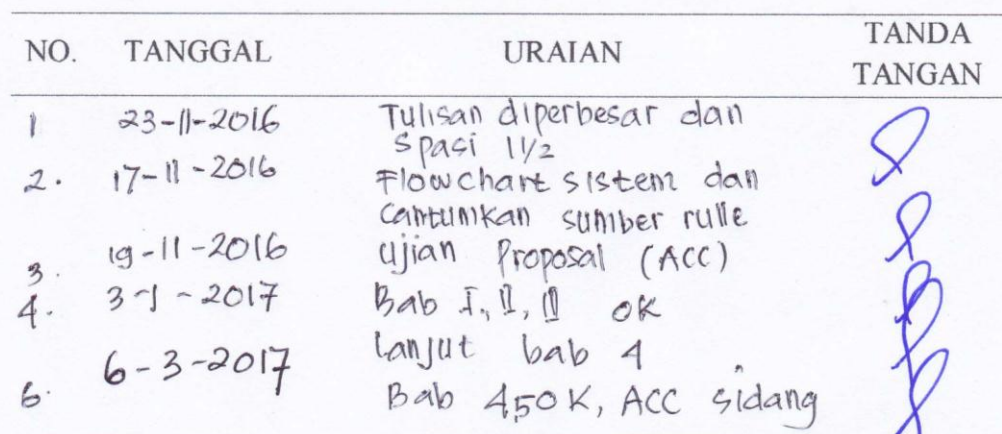 NO. TANGGAL URAIAN TANDA TANGAN
1 23-11-2016 Tulisan diperbesar dan
spasi 1 1/2
2. 17-11-2016 Flowchart sistem dan
cantumkan sumber rulle
3. 19-11-2016 ujian Proposal (ACC)
4. 3-1-2017 Bab I, II, III OK
lanjut bab 4
6. 6-3-2017 Bab 4,5 OK, ACC sidang